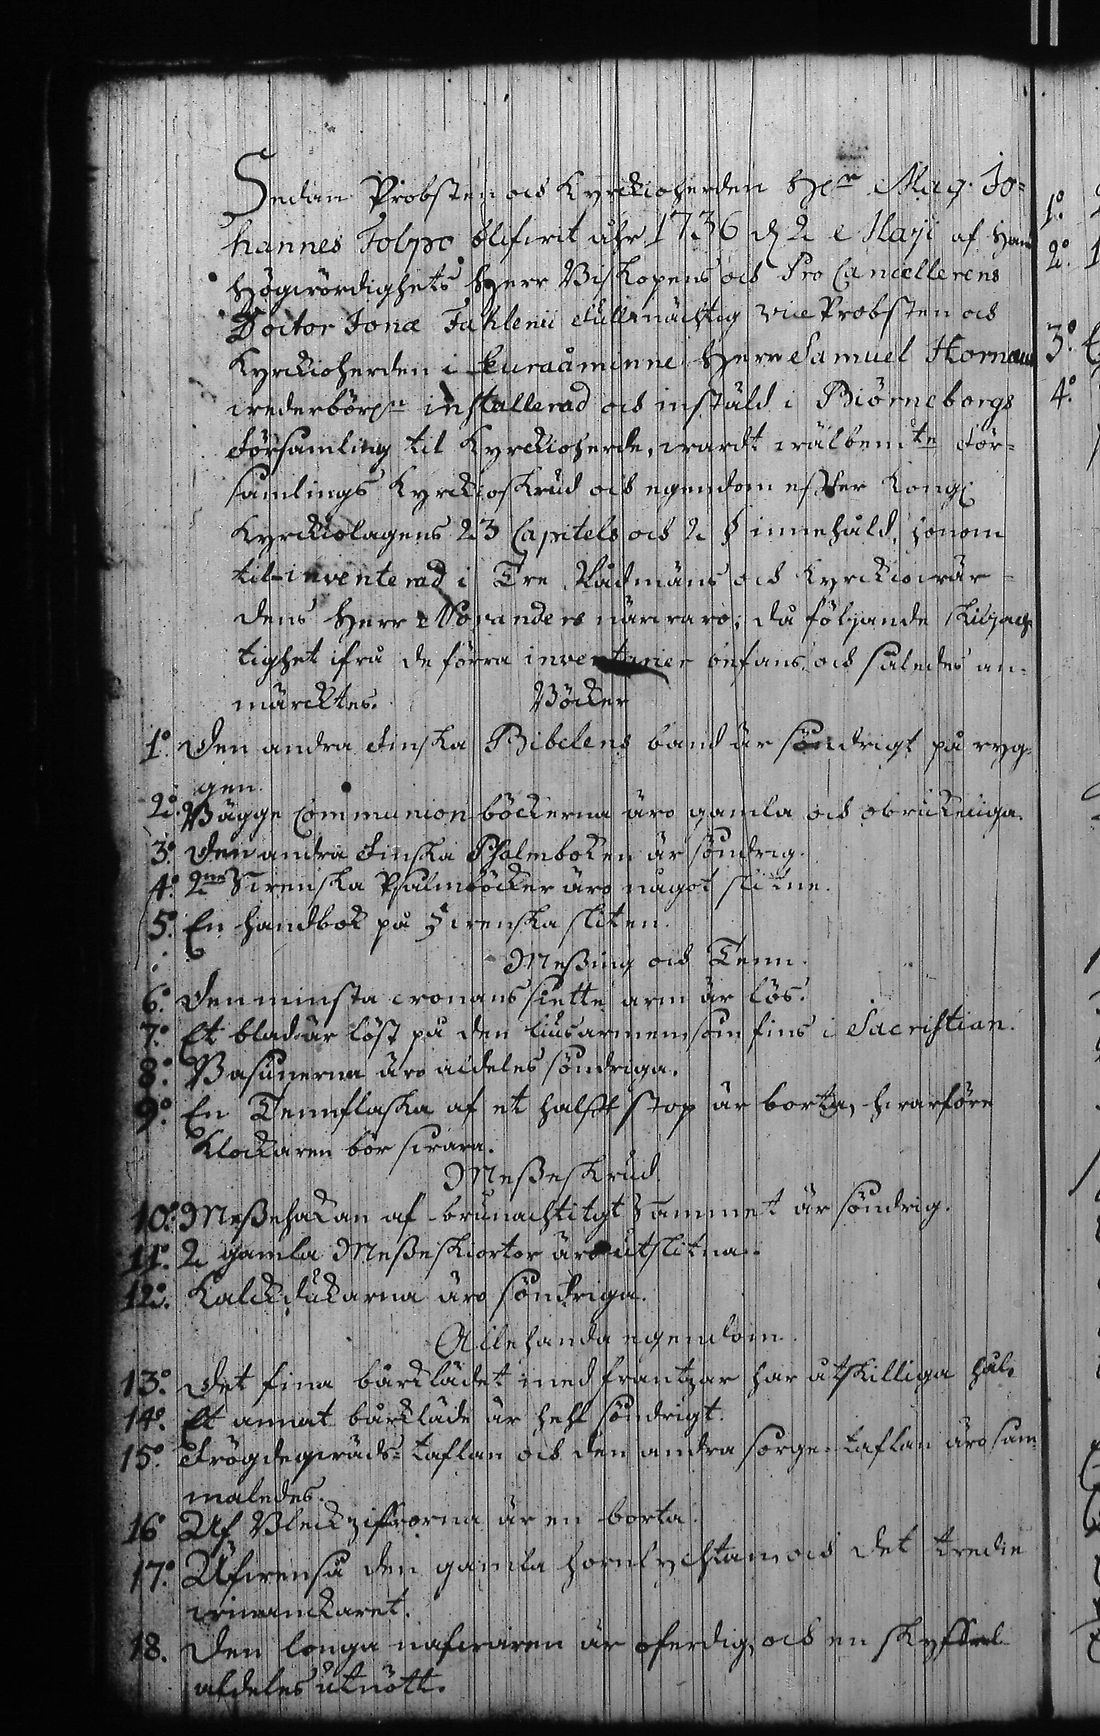 Sedan Probsten och Kyrckioherden Hr Mag. Jo=
hannes Tolpo blifvit åhr 1736 d 2 Maji af Hans
Högwördighets Herr Biskopens och Pro Cancellerens
Doctor Jonæ Fahlenii fullmächtig vice Probsten och
Kyrckioherden i Euraåminne Herr Samuel Hornæus
wederbörl:n installerad och instäld i Biörneborgs
församling til Kyrckioherde, wardt wälbem:te för=
samlings Kyrckioskrud och egendom efter Kongl:
Kyrckiolagens 23 Capitels och 2 § innehåld, honom
til-inventerad i Tre Rådmäns och Kyrckiowär=
dens Herr Novanders närwaro; då föliande skiljach=
tighet ifrå de förra inventarier befans och således an=
märcktes.
Böcker
1:o Den andra finska Bibelens band är söndrigt på ryg=
gen.
2:o Bägge Communion böckerna äro gamla och obrukeliga.
3:o Den andra finska Psalmboken är söndrig.
4:o 2:ne Swenska Psalmböcker äro något slitne.
5:o En handbok på Swenska sliten.
Messing och Tenn.
6:o Den minsta cronans siette arm är lös.
7:o Et blad är löst på den liusarmen som fins i Sacristian.
8:o Basunerna äro aldeles söndriga.
9:o En Tennflaska af et halfft stop är borta, hwarföre
Klockaren bör swara.
Messeskrud.
10:o Messehakan af brunachtitgt Sammet är söndrig.
11:o 2 gamla Messeskiortor äro utslitna.
12:o Kalckdukarna äro söndriga.
Allehanda egendom.
13:o Det fina bårklädet med frantzar har åtskilliga hål.
14:o Et annat bårkläde är helt söndrigt.
15:o Frögdeqwäds=taflan och den andra sorge=taflan äro sam=
maledes.
16 Af Bleckziffrorna är en borta.
17:o Äfwenså den gamla hornlychtan och det tredie
winanckaret.
18. Den longa nafwaren är oferdig, och en skyffel
aldeles utnött.